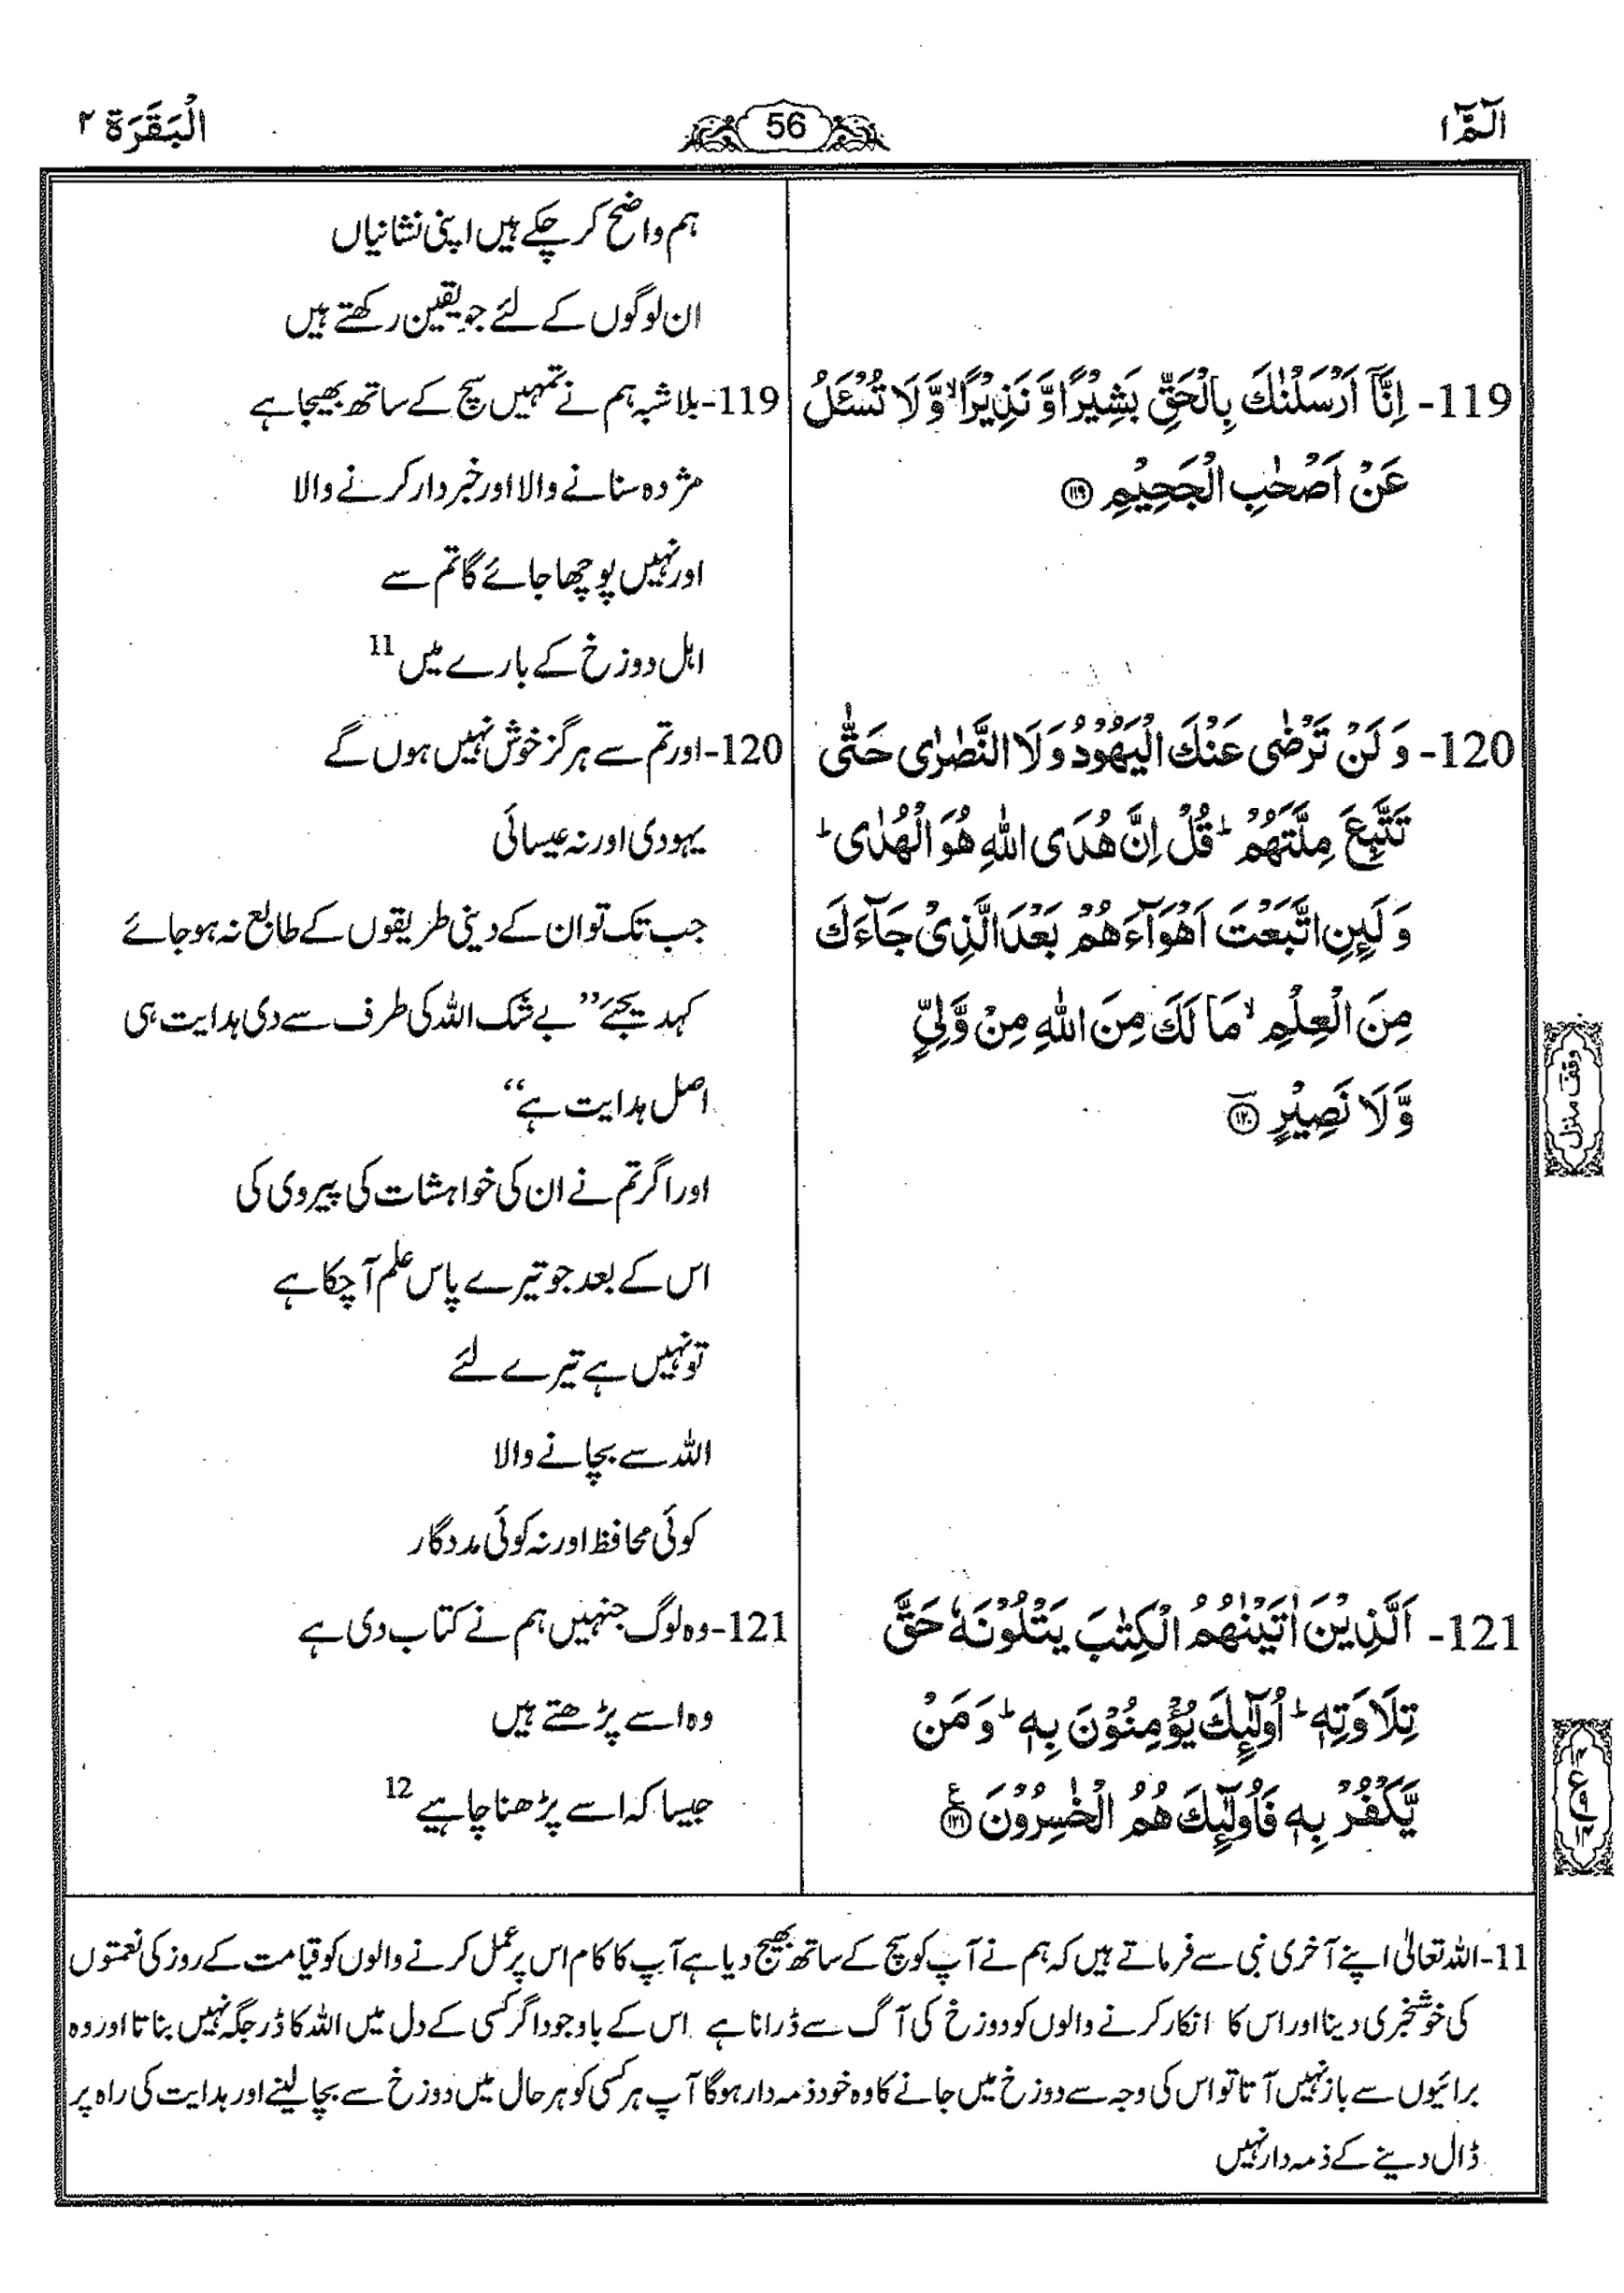 الٓمّٓ ١
56
الْبَقَرَة ٢
ہم واضح کر چکے ہیں اپنی نشانیاں
ان لوگوں کے لئے جو یقین رکھتے ہیں
119- اِنَّاۤ اَرْسَلْنٰكَ بِالْحَقِّ بَشِيْرًا وَّ نَذِيْرًا ۙ وَّ لَا تُسْـَٔلُ
عَنْ اَصْحٰبِ الْجَحِيْمِ ۝۱۱۹
119-بلاشبہ ہم نے تمہیں سچ کے ساتھ بھیجا ہے
مژدہ سنانے والا اور خبردار کرنے والا
اور نہیں پوچھا جائے گا تم سے
اہل دوزخ کے بارے میں 11
120- وَ لَنْ تَرْضٰى عَنْكَ الْيَهُوْدُ وَ لَا النَّصٰرٰى حَتّٰى
تَتَّبِعَ مِلَّتَهُمْ ؕ قُلْ اِنَّ هُدَى اللّٰهِ هُوَ الْهُدٰى ؕ
وَ لَىِٕنِ اتَّبَعْتَ اَهْوَآءَهُمْ بَعْدَ الَّذِيْ جَآءَكَ
مِنَ الْعِلْمِ ۙ مَا لَكَ مِنَ اللّٰهِ مِنْ وَّلِيٍّ
وَّ لَا نَصِيْرٍ ۝۱۲۰
120-اور تم سے ہرگز خوش نہیں ہوں گے
یہودی اور نہ عیسائی
جب تک تو ان کے دینی طریقوں کے طابع نہ ہو جائے
کہہ دیجئے ”بے شک اللہ کی طرف سے دی ہدایت ہی
اصل ہدایت ہے“
اور اگر تم نے ان کی خواہشات کی پیروی کی
اس کے بعد جو تیرے پاس علم آ چکا ہے
تو نہیں ہے تیرے لئے
اللہ سے بچانے والا
کوئی محافظ اور نہ کوئی مددگار
وقف منزل
121- اَلَّذِيْنَ اٰتَيْنٰهُمُ الْكِتٰبَ يَتْلُوْنَهٗ حَقَّ
تِلَاوَتِهٖ ؕ اُولٰٓىِٕكَ يُؤْمِنُوْنَ بِهٖ ؕ وَ مَنْ
يَّكْفُرْ بِهٖ فَاُولٰٓىِٕكَ هُمُ الْخٰسِرُوْنَ ۝۱۲۱ ع
121-وہ لوگ جنہیں ہم نے کتاب دی ہے
وہ اسے پڑھتے ہیں
جیسا کہ اسے پڑھنا چاہیے 12
11-اللہ تعالیٰ اپنے آخری نبی سے فرماتے ہیں کہ ہم نے آپ کو سچ کے ساتھ بھیج دیا ہے آپ کا کام اس پر عمل کرنے والوں کو قیامت کے روز کی نعمتوں
کی خوشخبری دینا اور اس کا انکار کرنے والوں کو دوزخ کی آگ سے ڈرانا ہے اس کے باوجود اگر کسی کے دل میں اللہ کا ڈر جگہ نہیں بناتا اور وہ
برائیوں سے باز نہیں آتا تو اس کی وجہ سے دوزخ میں جانے کا وہ خود ذمہ دار ہوگا آپ ہر کسی کو ہر حال میں دوزخ سے بچا لینے اور ہدایت کی راہ پر
ڈال دینے کے ذمہ دار نہیں